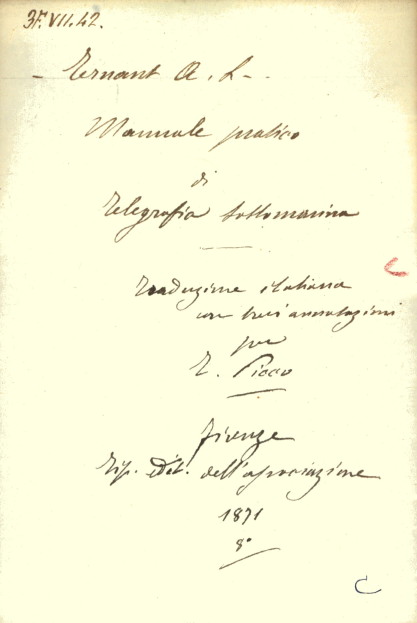 3F.VII.42.
- Ternant A. L. -
Manuale pratico
di
Telegrafia sottomarina
Traduzione italiana
con brevi annotazioni
per
E. Picco
Firenze
Tip. edit. dell'associazione
1871
8°
C